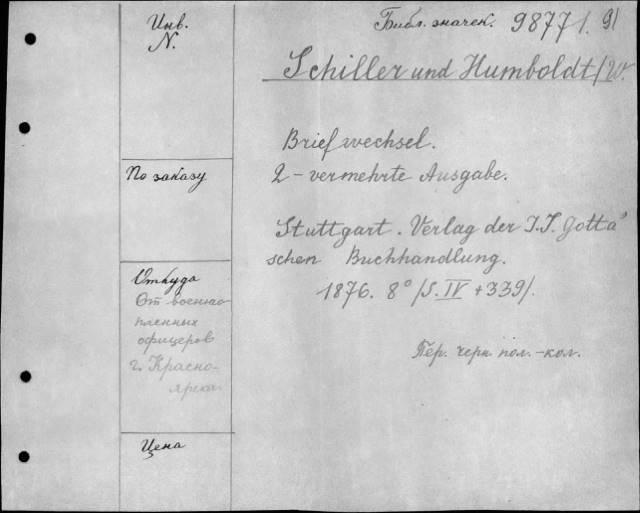 Инв.
N.
Библ. значек. 98771. 91
Schiller und Humboldt /W.
Briefwechsel.
По заказу
2-vermehrte Ausgabe.
Stuttgart. Verlag der J.J. Gotta'
schen Buchhandlung.
Откуда
1876. 8° /S. IV + 339/.
От военно-
пленных
офицеров
г. Красно-
ярска.
Пер. черн. пол.-кол.
Цена